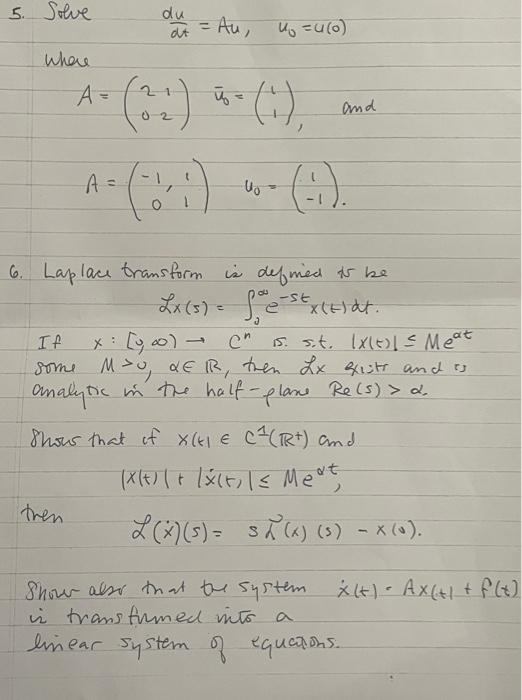 5. Solve du/dt = Au, u₀ = u(0)
where
A = (2 1; 0 2) ū₀ = (1; 1), and
A = (-1, 1; 0 1) u₀ = (1; -1).
6. Laplace transform is defined to be
ℒx(s) = ∫₀^∞ e^{-st} x(t) dt.
If x : [0, ∞) → Cⁿ is s.t. |x(t)| ≤ Me^{αt}
some M > 0, α ∈ ℝ, then ℒx exists and is
analytic in the half-plane Re(s) > α.
Show that if x(t) ∈ C¹(ℝ⁺) and
|x(t)| + |ẋ(t)| ≤ Me^{αt},
then ℒ(ẋ)(s) = sℒ(x)(s) - x(0).
Show also that the system ẋ(t) = Ax(t) + f(t)
is transformed into a
linear system of equations.